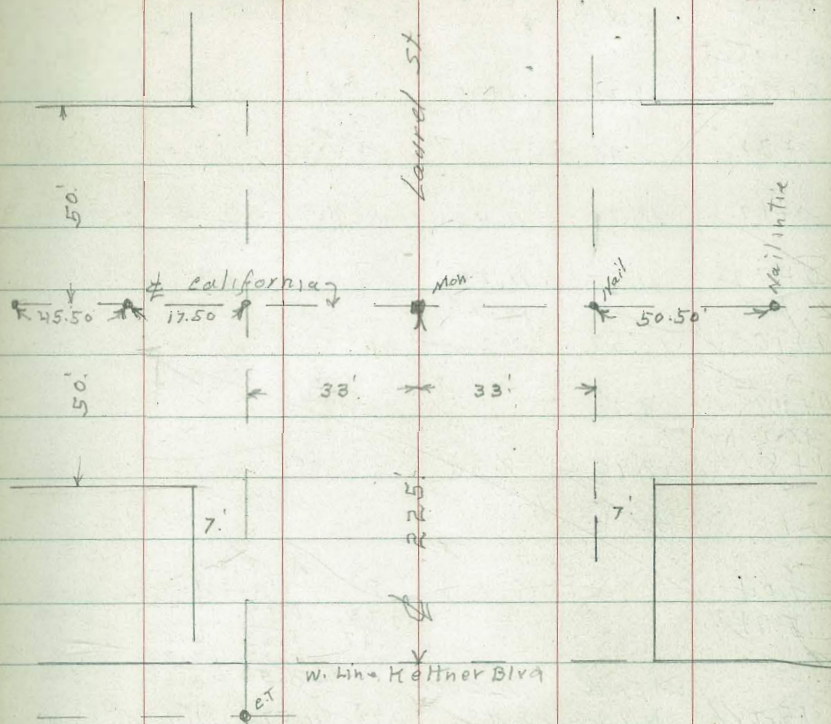 Laurel St.
50'
Nail in tie
℄ California
Mon.
Nail
45.50
17.50
50.50'
50'
33'
33'
7'
℄ 225'
7'
W. Line Kettner Blvd
C.T